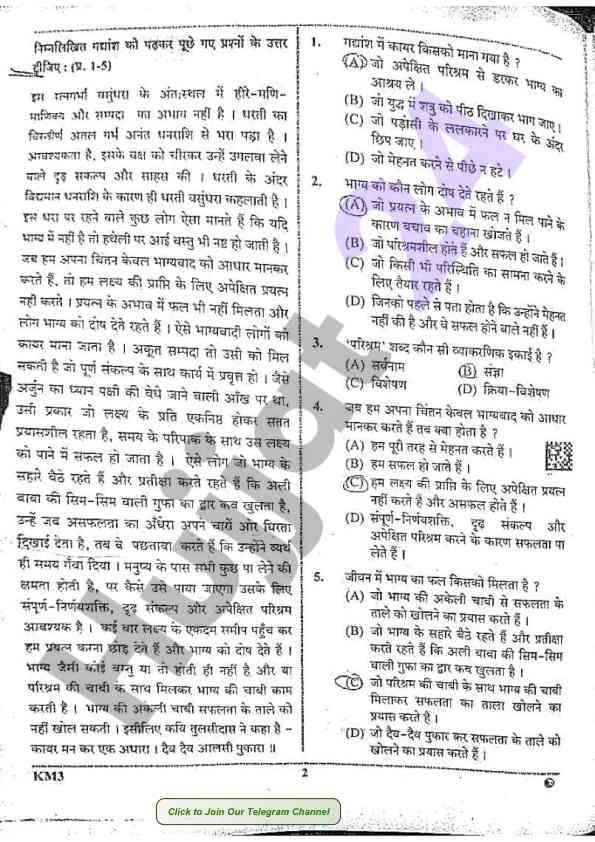 निम्नलिखित गद्यांश को पढ़कर पूछे गए प्रश्नों के उत्तर
दीजिए : (प्र. 1-5)
इस रत्नगर्भा वसुंधरा के अंतःस्थल में हीरे-मणि-
माणिक्य और सम्पदा का अभाव नहीं है । धरती का
विस्तीर्ण अतल गर्भ अनंत धनराशि से भरा पड़ा है ।
आवश्यकता है, इसके वक्ष को चीरकर उन्हें उगलवा लेने
वाले दृढ़ संकल्प और साहस की । धरती के अंदर
विद्यमान धनराशि के कारण ही धरती वसुंधरा कहलाती है ।
इस धरा पर रहने वाले कुछ लोग ऐसा मानते हैं कि यदि
भाग्य में नहीं है तो हथेली पर आई वस्तु भी नष्ट हो जाती है ।
जब हम अपना चिंतन केवल भाग्यवाद को आधार मानकर
करते हैं, तो हम लक्ष्य की प्राप्ति के लिए अपेक्षित प्रयत्न
नहीं करते । प्रयत्न के अभाव में फल भी नहीं मिलता और
लोग भाग्य को दोष देते रहते हैं । ऐसे भाग्यवादी लोगों को
कायर माना जाता है । अकूत सम्पदा तो उसी को मिल
सकती है जो पूर्ण संकल्प के साथ कार्य में प्रवृत्त हो । जैसे
अर्जुन का ध्यान पक्षी की वेधे जाने वाली आँख पर था,
उसी प्रकार जो लक्ष्य के प्रति एकनिष्ठ होकर सतत
प्रयासशील रहता है, समय के परिपाक के साथ उस लक्ष्य
को पाने में सफल हो जाता है । ऐसे लोग जो भाग्य के
सहारे बैठे रहते हैं और प्रतीक्षा करते रहते हैं कि अली
बाबा की सिम-सिम वाली गुफा का द्वार कब खुलता है,
उन्हें जब असफलता का अँधेरा अपने चारों ओर घिरता
दिखाई देता है, तब वे पछतावा करते हैं कि उन्होंने व्यर्थ
ही समय गँवा दिया । मनुष्य के पास सभी कुछ पा लेने की
क्षमता होती है, पर कैसे उसे पाया जाएगा उसके लिए
संपूर्ण-निर्णयशक्ति, दृढ़ संकल्प और अपेक्षित परिश्रम
आवश्यक है । कई बार लक्ष्य के एकदम समीप पहुँच कर
हम प्रयत्न करना छोड़ देते हैं और भाग्य को दोष देते हैं ।
भाग्य जैसी कोई वस्तु या तो होती ही नहीं है और या
परिश्रम की चाबी के साथ मिलकर भाग्य की चाबी काम
करती है । भाग्य की अकेली चाबी सफलता के ताले को
नहीं खोल सकती । इसीलिए कवि तुलसीदास ने कहा है -
कायर मन कर एक अधारा । दैव दैव आलसी पुकारा ॥
1. गद्यांश में कायर किसको माना गया है ?
(A) जो अपेक्षित परिश्रम से डरकर भाग्य का
आश्रय ले ।
(B) जो युद्ध में शत्रु को पीठ दिखाकर भाग जाए।
(C) जो पड़ोसी के ललकारने पर घर के अंदर
छिप जाए ।
(D) जो मेहनत करने से पीछे न हटे ।
2. भाग्य को कौन लोग दोष देते रहते हैं ?
(A) जो प्रयत्न के अभाव में फल न मिल पाने के
कारण बचाव का बहाना खोजते हैं ।
(B) जो परिश्रमशील होते हैं और सफल हो जाते हैं ।
(C) जो किसी भी परिस्थिति का सामना करने के
लिए तैयार रहते हैं ।
(D) जिनको पहले से पता होता है कि उन्होंने मेहनत
नहीं की है और वे सफल होने वाले नहीं हैं ।
3. 'परिश्रम' शब्द कौन सी व्याकरणिक इकाई है ?
(A) सर्वनाम (B) संज्ञा
(C) विशेषण (D) क्रिया-विशेषण
4. जब हम अपना चिंतन केवल भाग्यवाद को आधार
मानकर करते हैं तब क्या होता है ?
(A) हम पूरी तरह से मेहनत करते हैं ।
(B) हम सफल हो जाते हैं ।
(C) हम लक्ष्य की प्राप्ति के लिए अपेक्षित प्रयत्न
नहीं करते हैं और असफल होते हैं ।
(D) संपूर्ण-निर्णयशक्ति, दृढ़ संकल्प और
अपेक्षित परिश्रम करने के कारण सफलता पा
लेते हैं ।
5. जीवन में भाग्य का फल किसको मिलता है ?
(A) जो भाग्य की अकेली चाबी से सफलता के
ताले को खोलने का प्रयास करते हैं ।
(B) जो भाग्य के सहारे बैठे रहते हैं और प्रतीक्षा
करते रहते हैं कि अली बाबा की सिम-सिम
वाली गुफा का द्वार कब खुलता है ।
(C) जो परिश्रम की चाबी के साथ भाग्य की चाबी
मिलाकर सफलता का ताला खोलने का
प्रयास करते हैं ।
(D) जो दैव-दैव पुकार कर सफलता के ताले को
खोलने का प्रयास करते हैं ।
KM3
2
Click to Join Our Telegram Channel